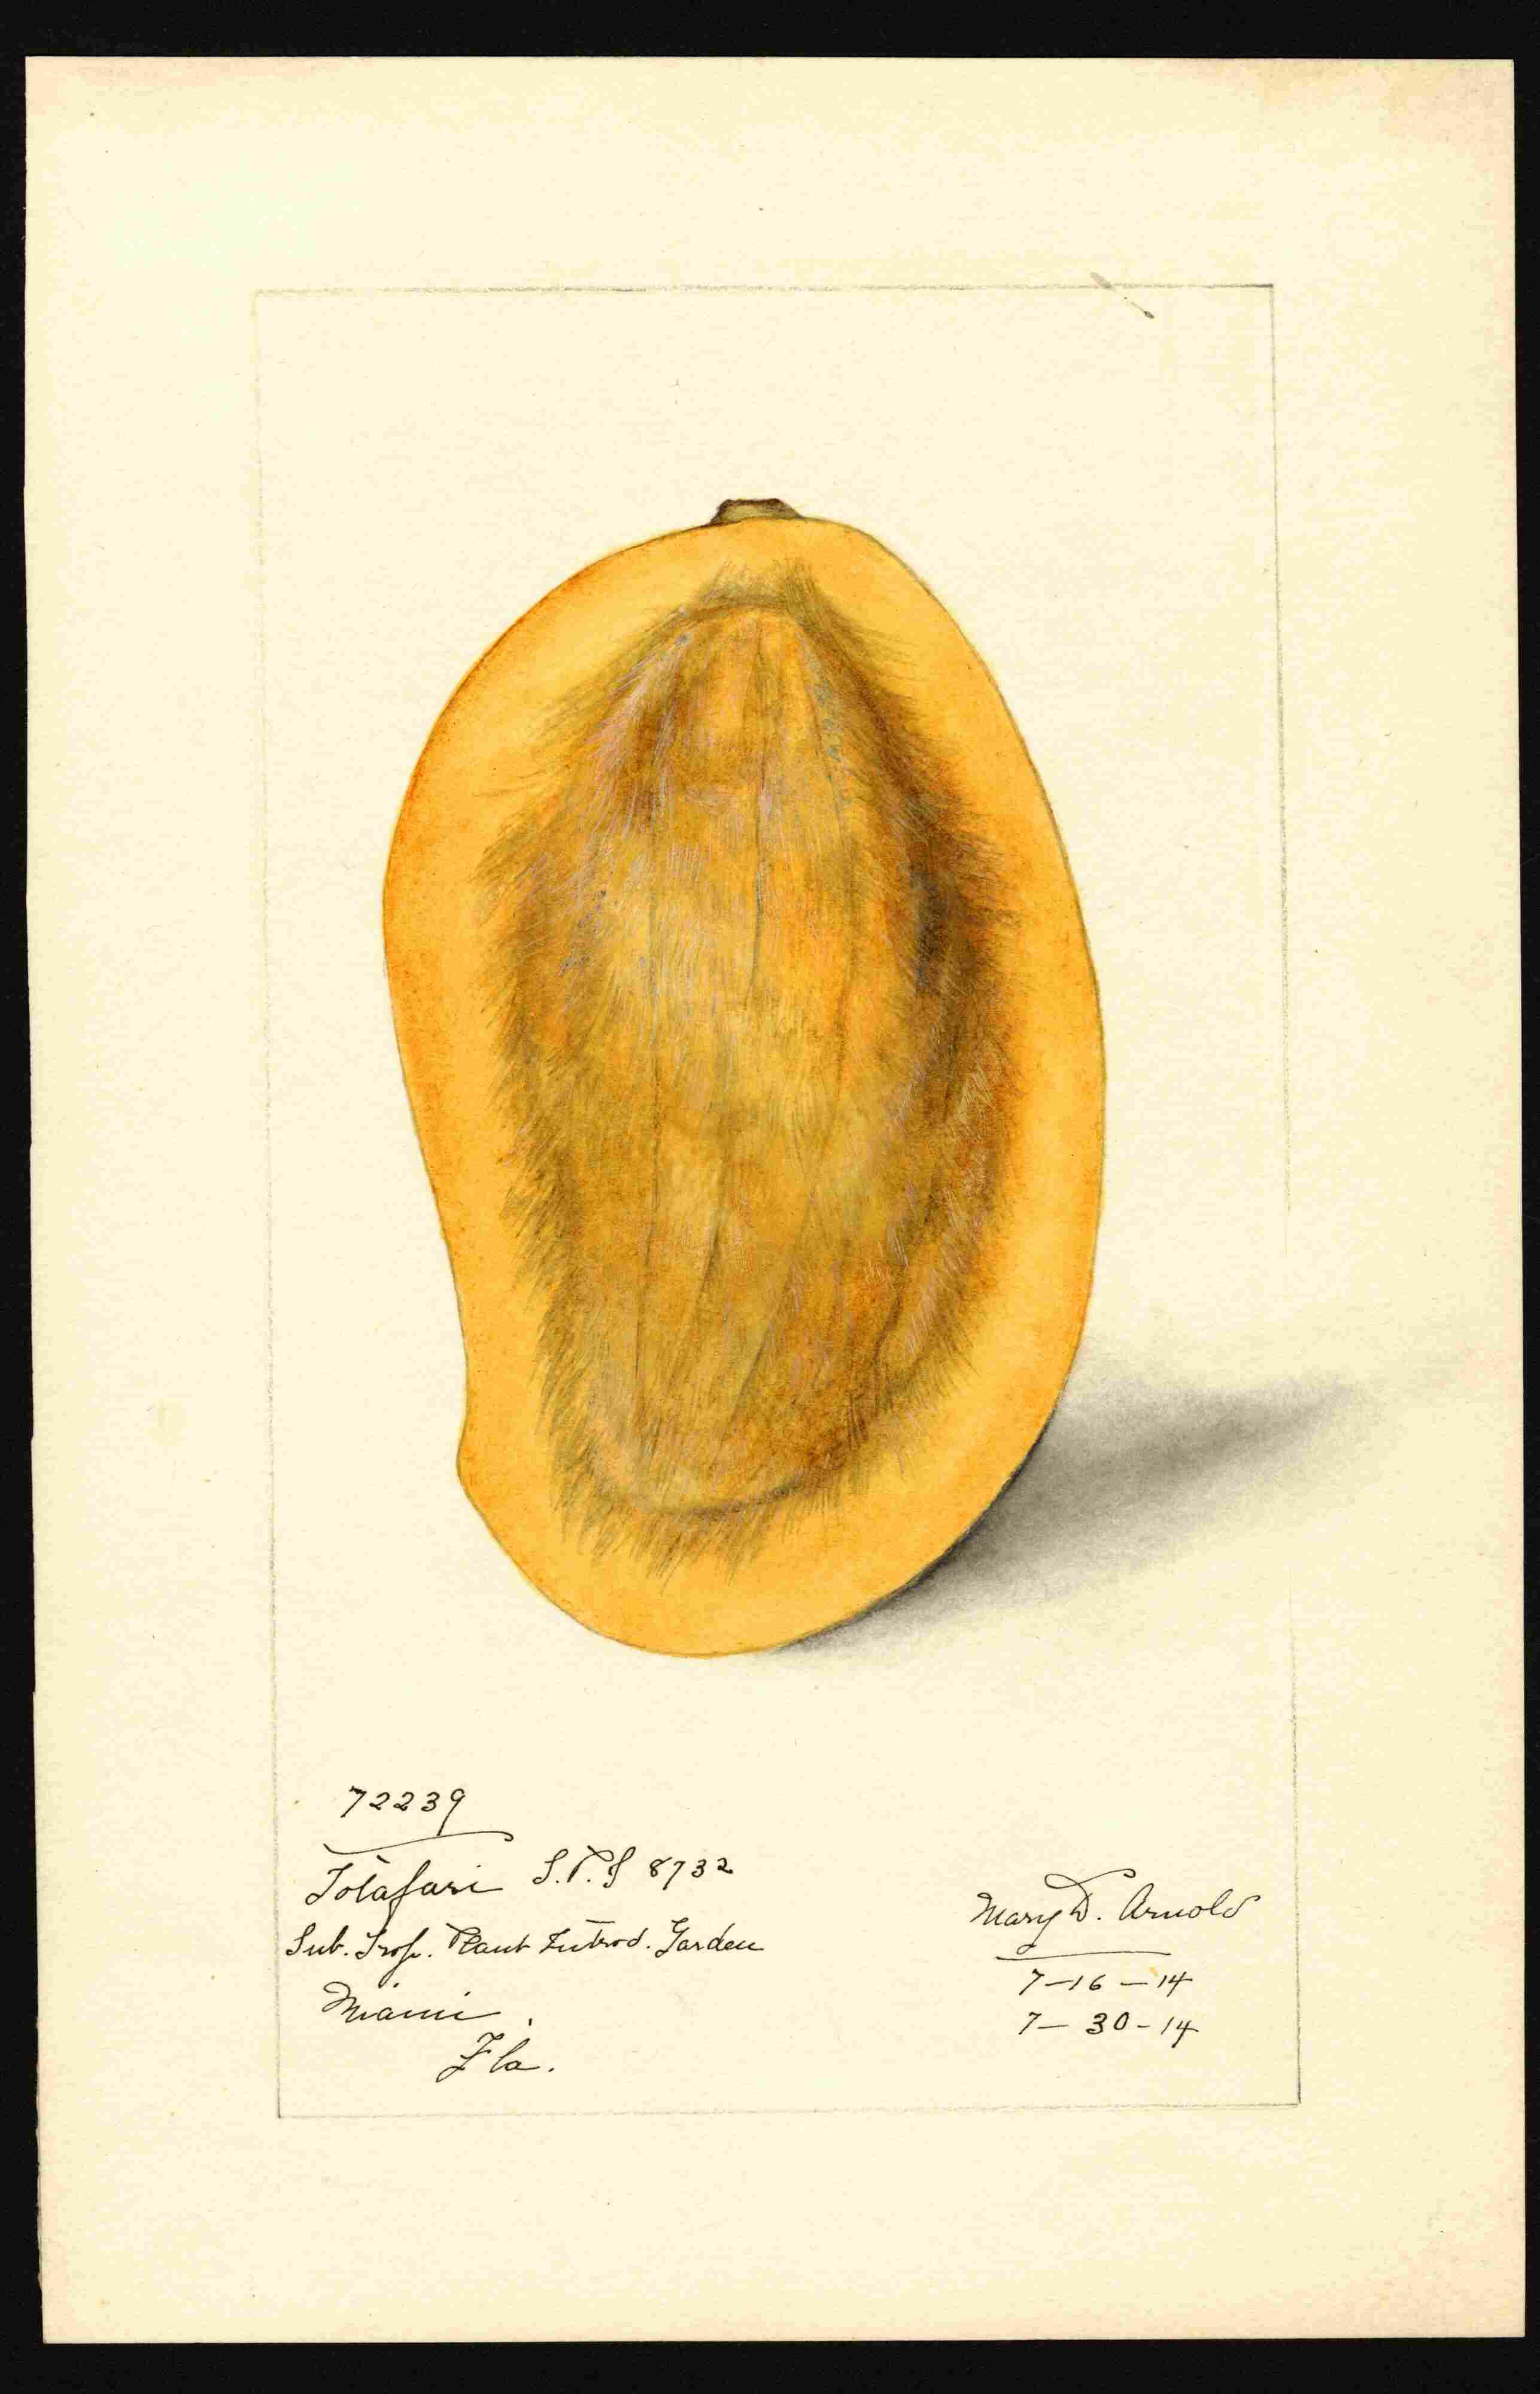 72239
Totafari S.P.I 8732
Sub. Trop. Plant Introd. Garden
Miami,
Fla.
Mary D. Arnold
7-16-14
7-30-14